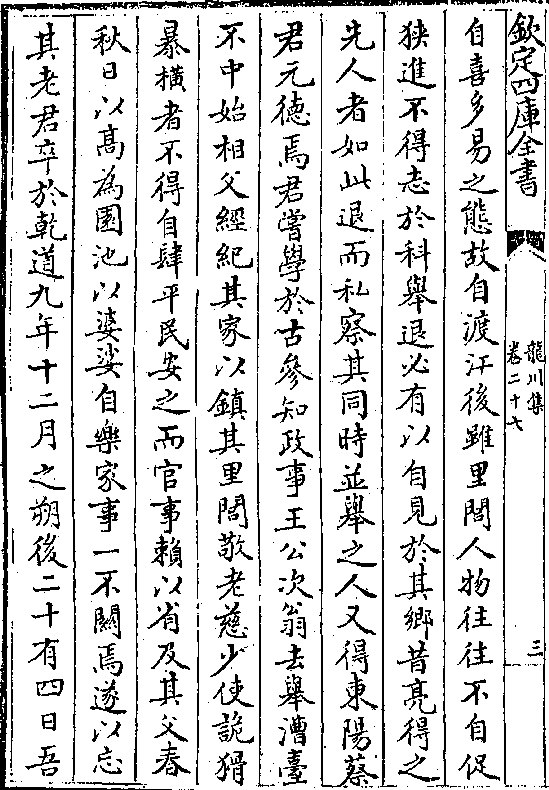 欽定四庫全書
龍川集
卷二十七
三
自喜多易之態故自渡江後雖里閭人物往往不自促
狹進不得志於科舉退必有以自見於其鄉昔亮得之
先人者如此退而私察其同時並舉之人又得東陽蔡
君元德焉君嘗學於古參知政事王公次翁去舉漕臺
不中始相父經紀其家以鎮其里閭敬老慈少使詭猾
暴橫者不得自肆平民安之而官事賴以省及其父春
秋日以高為園池以婆娑自樂家事一不關焉遂以忘
其老君卒於乾道九年十二月之朔後二十有四日吾